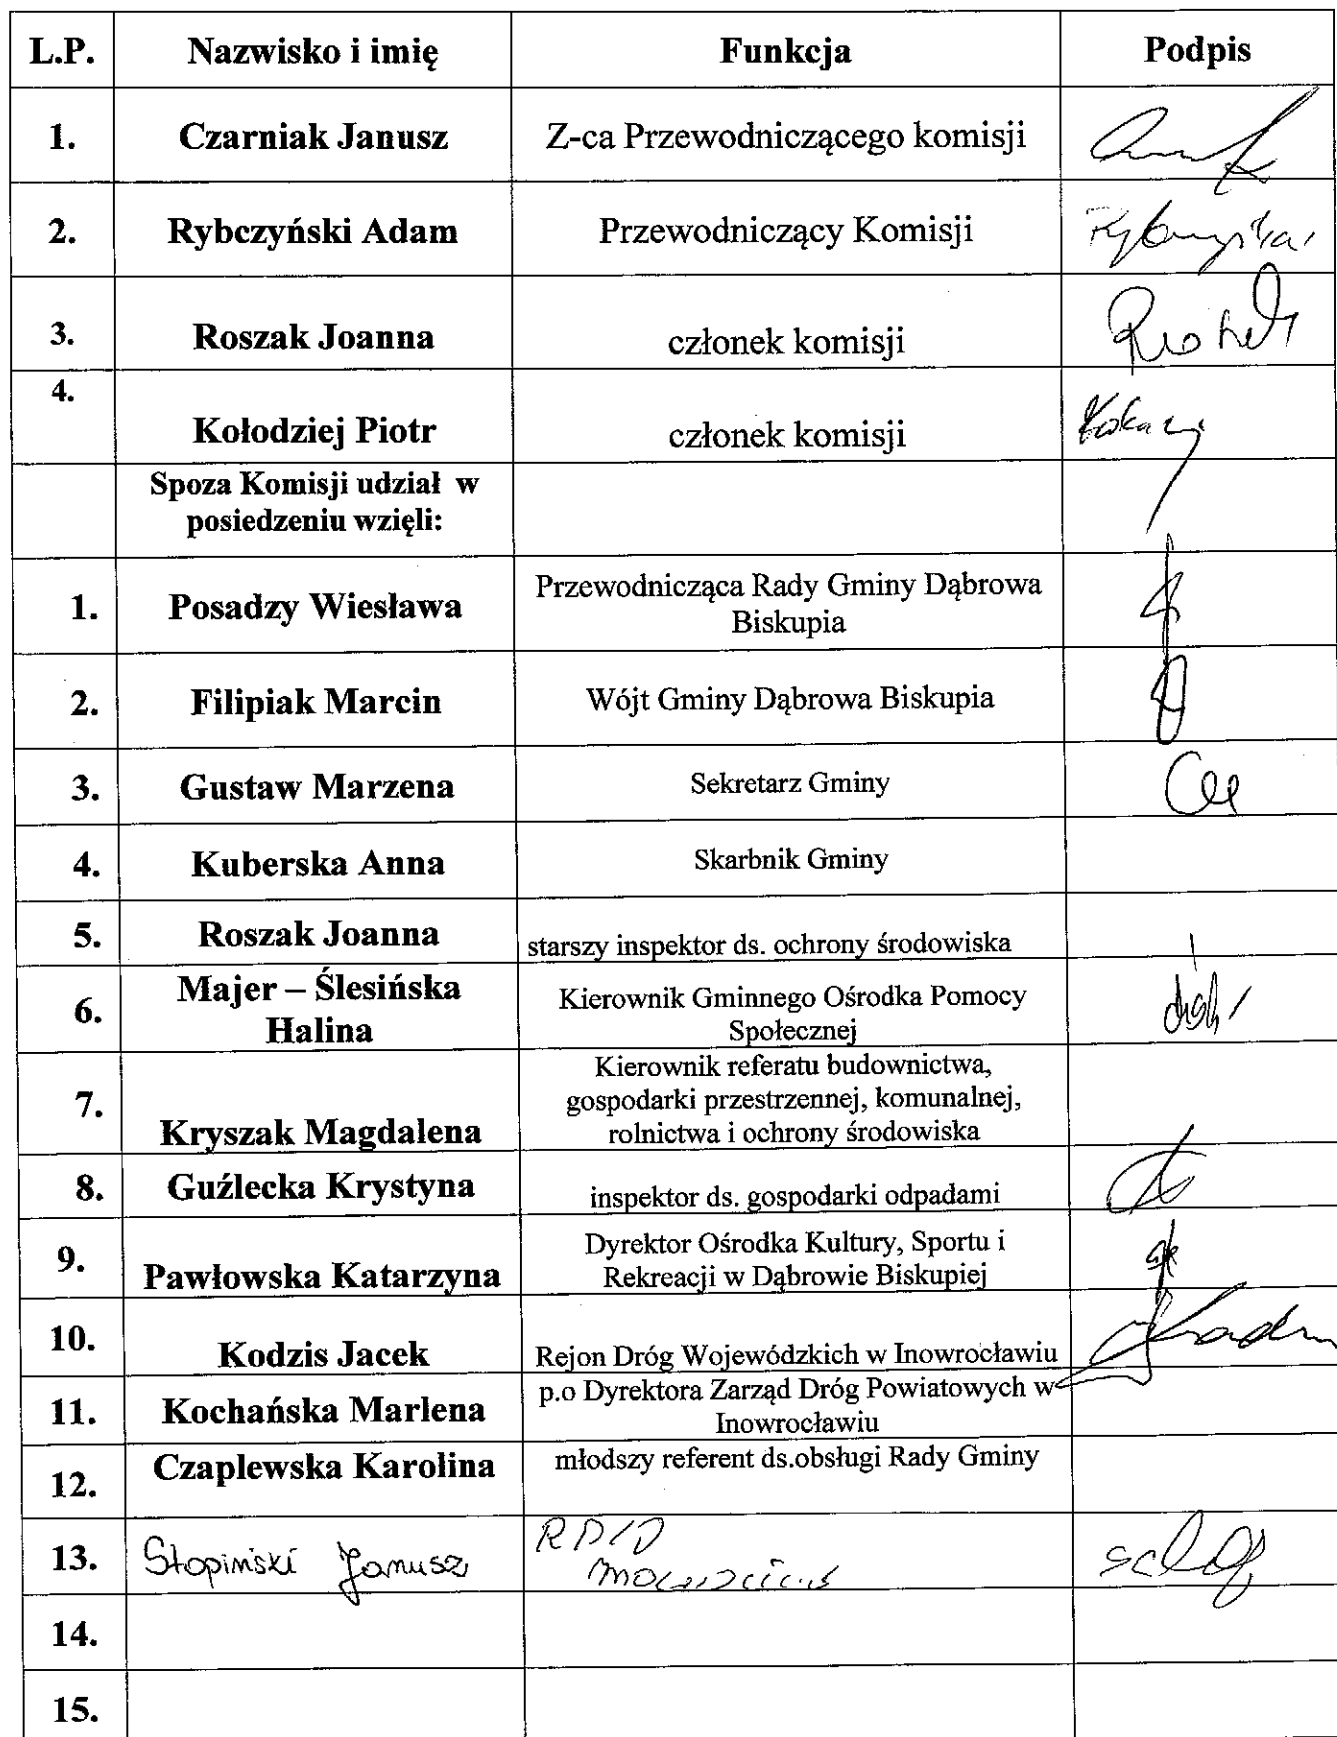 L.P. Nazwisko i imię Funkcja Podpis
1. Czarniak Janusz Z-ca Przewodniczącego komisji
2. Rybczyński Adam Przewodniczący Komisji
3. Roszak Joanna członek komisji
4. Kołodziej Piotr członek komisji
Spoza Komisji udział w
posiedzeniu wzięli:
1. Posadzy Wiesława Przewodnicząca Rady Gminy Dąbrowa
Biskupia
2. Filipiak Marcin Wójt Gminy Dąbrowa Biskupia
3. Gustaw Marzena Sekretarz Gminy
4. Kuberska Anna Skarbnik Gminy
5. Roszak Joanna starszy inspektor ds. ochrony środowiska
6. Majer – Ślesińska
Halina
Kierownik Gminnego Ośrodka Pomocy
Społecznej
7. Kryszak Magdalena
Kierownik referatu budownictwa,
gospodarki przestrzennej, komunalnej,
rolnictwa i ochrony środowiska
8. Guźlecka Krystyna inspektor ds. gospodarki odpadami
9. Pawłowska Katarzyna
Dyrektor Ośrodka Kultury, Sportu i
Rekreacji w Dąbrowie Biskupiej
10. Kodzis Jacek Rejon Dróg Wojewódzkich w Inowrocławiu
11. Kochańska Marlena
p.o Dyrektora Zarząd Dróg Powiatowych w
Inowrocławiu
12. Czaplewska Karolina młodszy referent ds.obsługi Rady Gminy
13. Stopiński Janusz
14.
15.